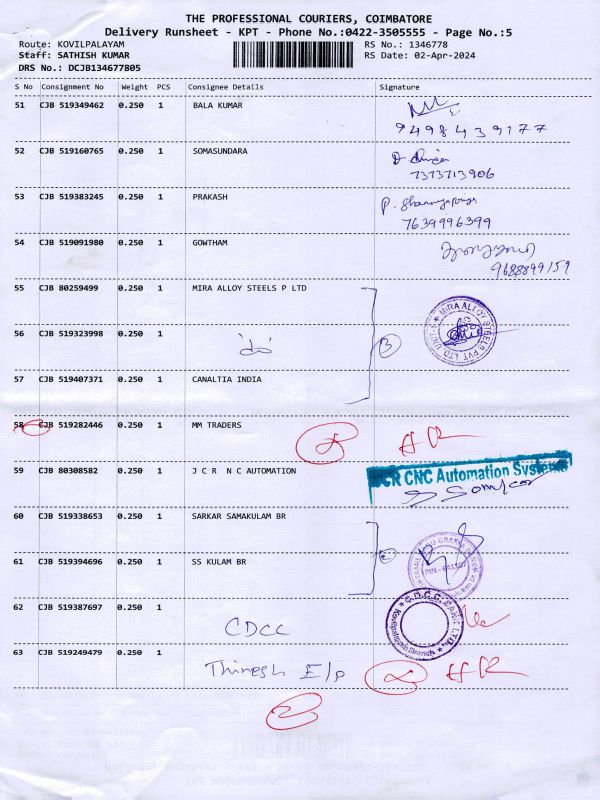 THE PROFESSIONAL COURIERS, COIMBATORE
Delivery Runsheet - KPT - Phone No.:0422-3505555 - Page No.:5
Route: KOVILPALAYAM RS No.: 1346778
Staff: SATHISH KUMAR RS Date: 02-Apr-2024
DRS No.: DCJB134677805
S No Consignment No Weight PCS Consignee Details Signature
51 CJB 519349462 0.250 1 BALA KUMAR
9498439177
52 CJB 519160765 0.250 1 SOMASUNDARA
7373713906
53 CJB 519383245 0.250 1 PRAKASH P.
7639996399
54 CJB 519091980 0.250 1 GOWTHAM
9688899159
55 CJB 80259499 0.250 1 MIRA ALLOY STEELS P LTD
MIRA ALLOY STEELS PVT LTD
56 CJB 519323998 0.250 1 'do' 3
57 CJB 519407371 0.250 1 CANALTIA INDIA
58 CJB 519282446 0.250 1 MM TRADERS
59 CJB 80308582 0.250 1 J C R N C AUTOMATION
CR CNC Automation Systems
60 CJB 519338653 0.250 1 SARKAR SAMAKULAM BR
61 CJB 519394696 0.250 1 SS KULAM BR
62 CJB 519387697 0.250 1
CDCC
C.D.C.C. BANK LTD.
Kovilpalayam Branch
63 CJB 519249479 0.250 1
Thinesh E/P